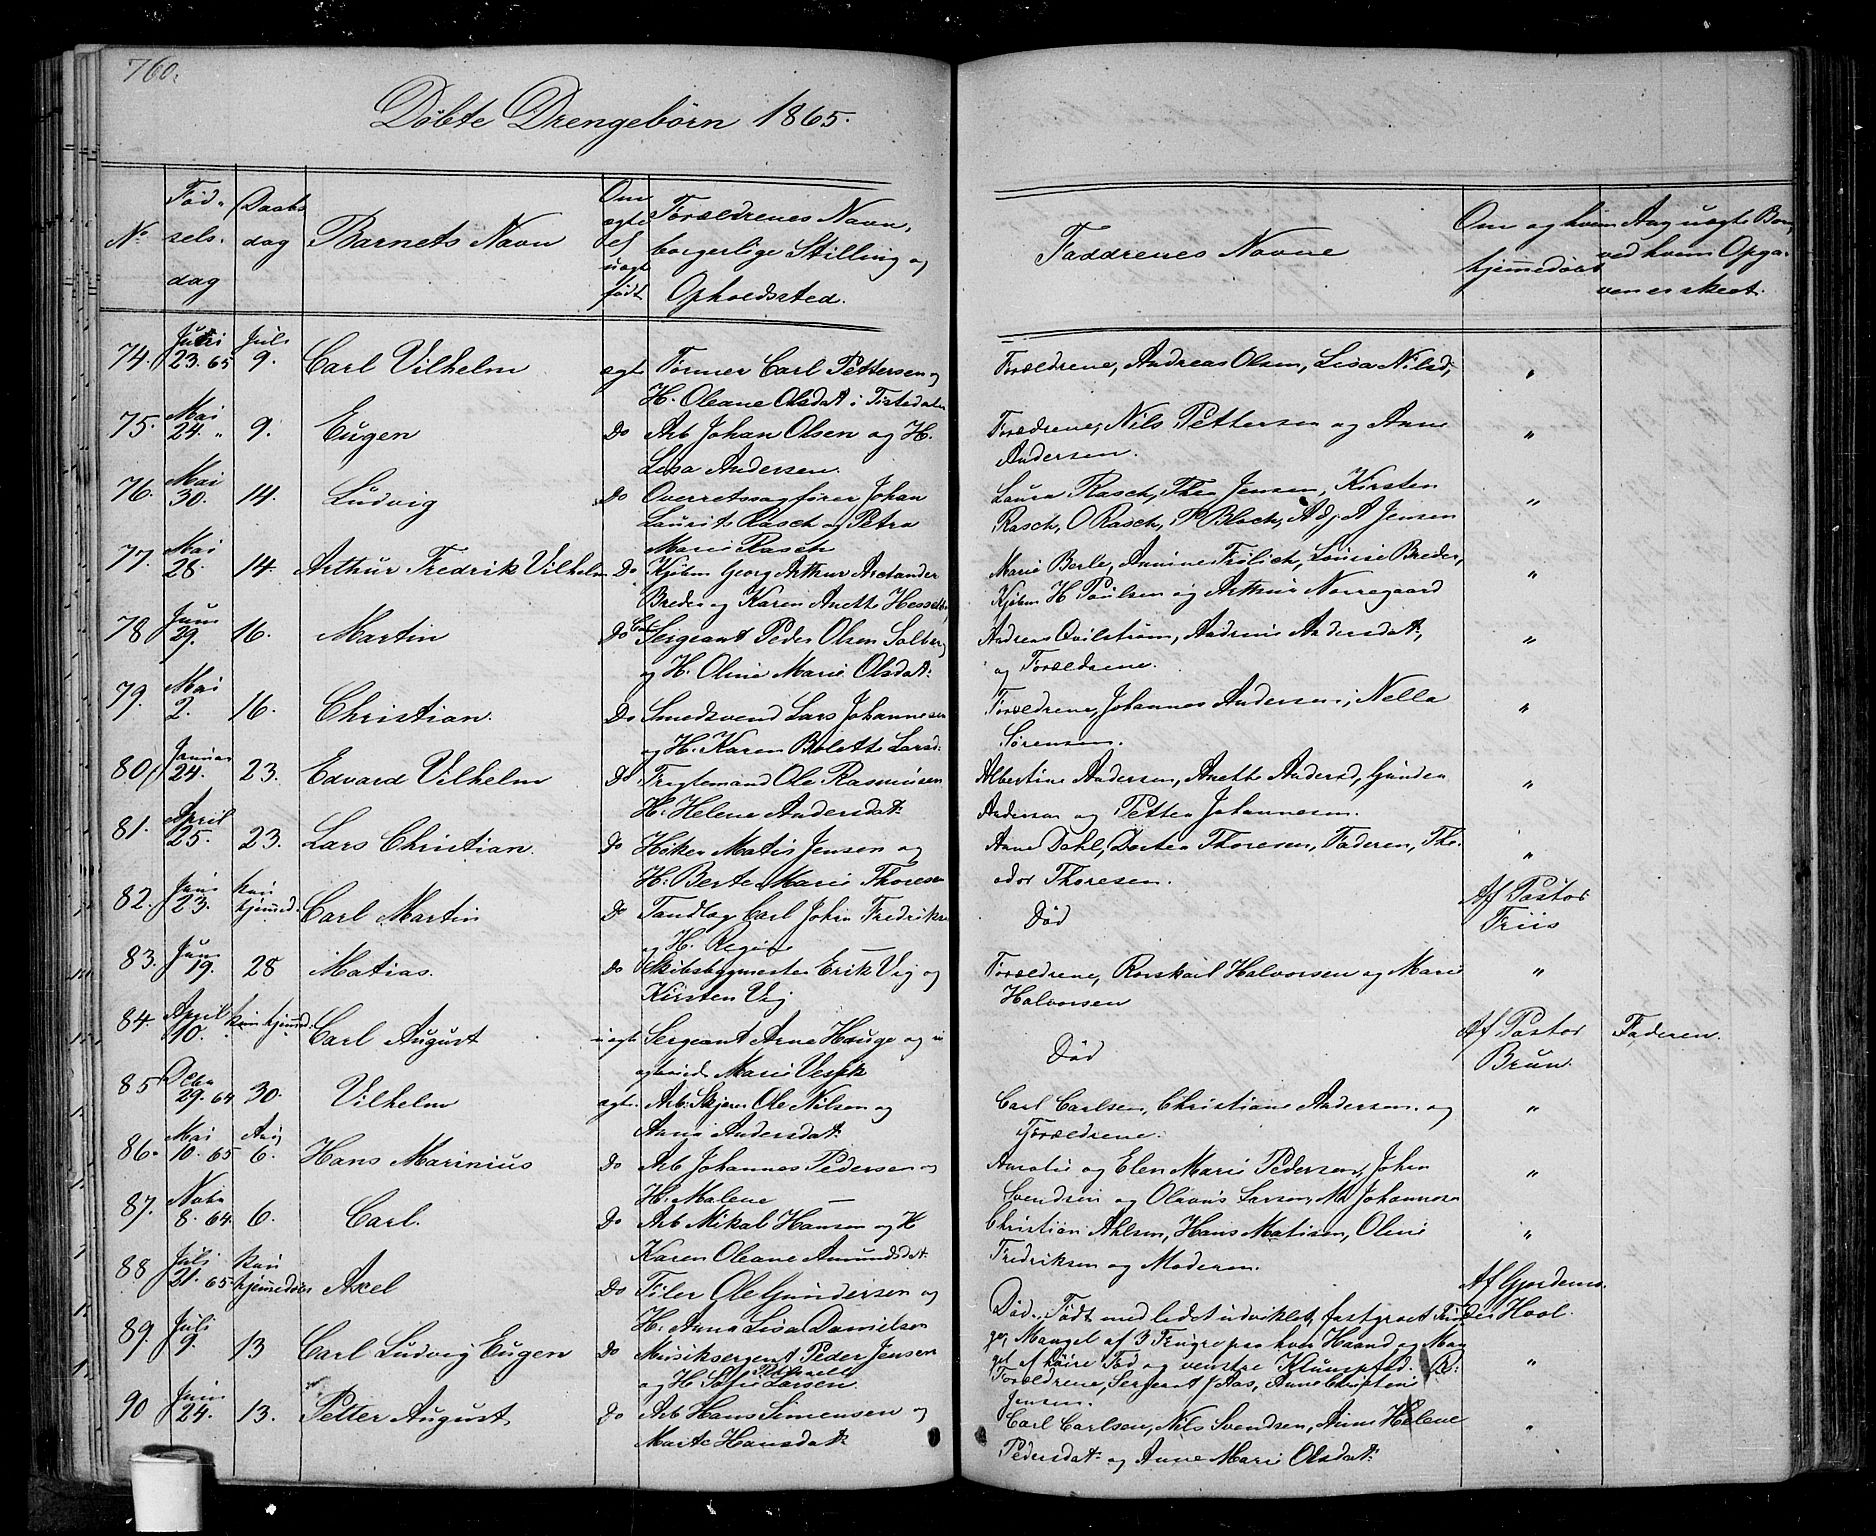 760.
Döbte Drengebørn 1865.
No.
Fød-
sels-
dag
Daabs
dag
Barnets Navn
Om
ægte
el
uægt
født
Forældrenes Navn,
borgerlige Stilling og
Opholdssted.
Faddrenes Navne
Om og hvem
hjemmedøbt
Ang uægte Børn,
ved hvem Opga-
ven er skeet.
74. Juni 23. 65 Juli 9. Carl Vilhelm ægt Former Carl Pettersen og
H. Oleane Olsdat i Tistedalen
Forældrene, Andreas Olsen, Lisa Nilsd, "
75. Mai 24. " 9. Eugen Do Arb Johan Olsen og H.
Lisa Andersen.
Forældrene, Nils Pettersen og Anne
Andersen. "
76. Mai 30. 14. Ludvig Do Overretssagfører Johan
Laurits Rasch og Petra
Marie Rasch
Laura Rasch, Thea Jensen, Kirsten
Rasch, O Rasch, P Bloch, Adj. A Jensen "
77. Mai 28. 14. Arthur Fredrik Vilhelm Do Kjøbm Georg Arthur Arctander
Breder og Karen Anette Hesselb,
Marie Berle, Annine Frølich, Louise Breder,
Kjøbm H Paulsen og Arthur Norregaard "
78 Juni 29. 16. Martin Do Sergeant Peder Olsen Solberg
og H. Oline Marie Olsdat:
Andreas Qvilstrøm, Andrine Andersdat,
og Forældrene. "
79. Mai 2. 16. Christian. Do Smedsvend Lars Johannesen
og H. Karen Bolette Larsd.
Forældrene, Johannes Andersen, Nella
Sørensen. "
80 Januar 24. 23. Edvard Vilhelm Do Fragtemand Ole Rasmusen
H. Helene Andersdat:
Albertine Andersen, Anette Andersd, Gunder
Anderson og Petter Johannesen. "
81. April 25. 23. Lars Christian. Do Høker Matis Jensen og
H. Berte Marie Thoresen
Anne Dahl, Dortea Thoresen, Faderen, Tho-
odor Thoresen. "
82. Juni 23. kun hjemmed. Carl Martin Do Tandlæg Carl John Fredriksen
og H. Regine —
Død Af Pastor
Friis
83. Juni 19. 28 Matias. Do Skibsbygmester Erik Vig og
Kirsten Vig
Forældrene, Rorskarl Halvorsen og Marie
Halvorsen "
84. April 10. kun hjemmed: Carl August uægte Sergeant Arne Hauge og
ugivt Marie
Død Af Pastor
Brun. Faderen.
85 Decbr 29. 64 30. Vilhelm ægte. Arb: Skjerer Ole Nilsen og
Anne Andersdat:
Carl Carlsen, Christiane Andersen. og
Forældrene. "
86. Mai 10. 65 Aug 6. Hans Marinius Do Arb Johannes Pedersen og
H. Malene —
Amalie og Elen Marie Pedersen, John
Svendsen og Olavus Larsen, M. Johannesen "
87. Novbr 8. 64. 6. Carl. Do Arb Mikal Hansen og H
Karen Oleane Amundsdat:
Christian Ahlsen, Hans Matisen, Oline
Fredriksen og Moderen. "
88 Juli 21. 65 kun hjemmedøbt Axel Do Filer Ole Gundersen og
H. Anna Lisa Danielsen
Død. Født med ledet udviklet, fastgroet Fin-
ger, Mangel af 3 Fingre paa hver Haand og Man-
gel af høire Fod og venstre Klumpfod.
Af Gjordemo-
der Hool.
89. Juli 9. 13 Carl Ludvig Eugen Do Musiksergent Peder Jensen
og H Sofie Petronelle Larsen.
Forældrene, Sergeant J Aas, Anne Christine
Jensen. "
90 Juni 24. 13. Petter August Do Arb Hans Simensen og
Marte Hansdat:
Carl Carlsen, Nils Svendsen, Anne Helene
Pedersdat: og Anne Marie Olsdat: "